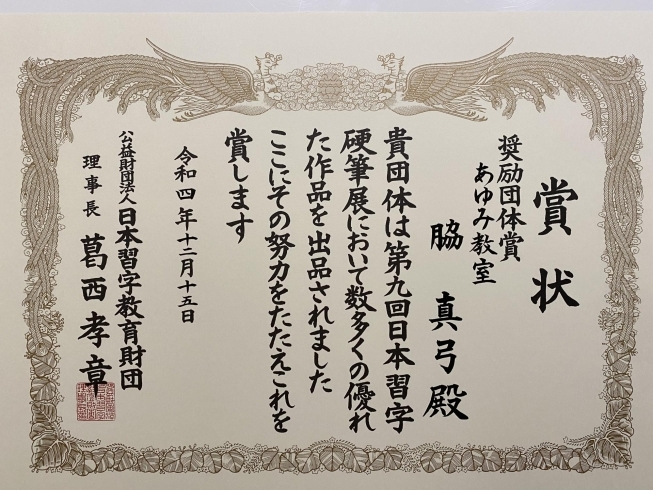 賞状
奨励団体賞
あゆみ教室
脇 真弓殿
貴団体は第九回日本習字
硬筆展において数多くの優れ
た作品を出品されました
ここにその努力をたたえこれを
賞します
令和四年十二月十五日
公益財団法人日本習字教育財団
理事長 葛西孝章